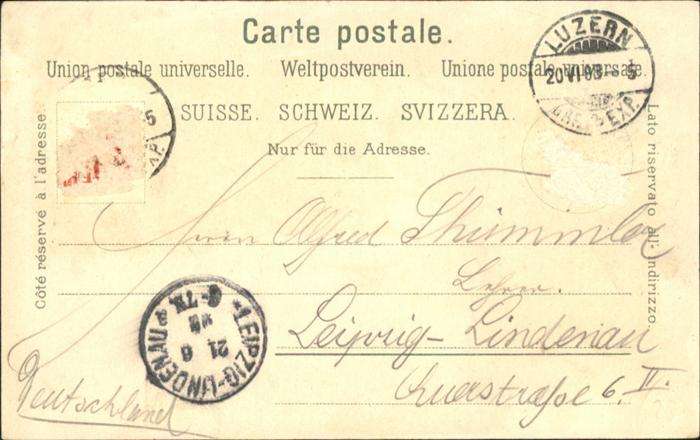 Carte postale.
Union postale universelle. Weltpostverein. Unione postale universale.
SUISSE. SCHWEIZ. SVIZZERA.
Nur für die Adresse.
Côté réservé à l'adresse.
Lato riservato all' indirizzo.
LUZERN
20 VI 98 5
BRF. EXP.
5
XP.
Herrn Alfred Thümmler
Lehrer.
Leipzig-Lindenau
Querstraße 6. II.
Deutschland
* LEIPZIG-LINDENAU
21 6
98